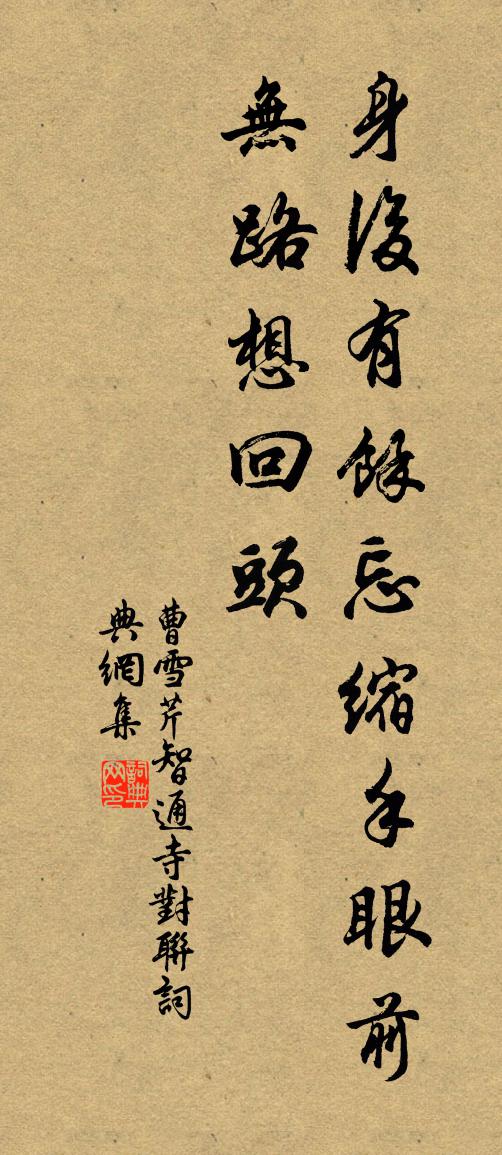 身後有餘忘縮手眼前
無路想回頭
曹雪芹智通寺對聯詞
典網集
詞典
网印